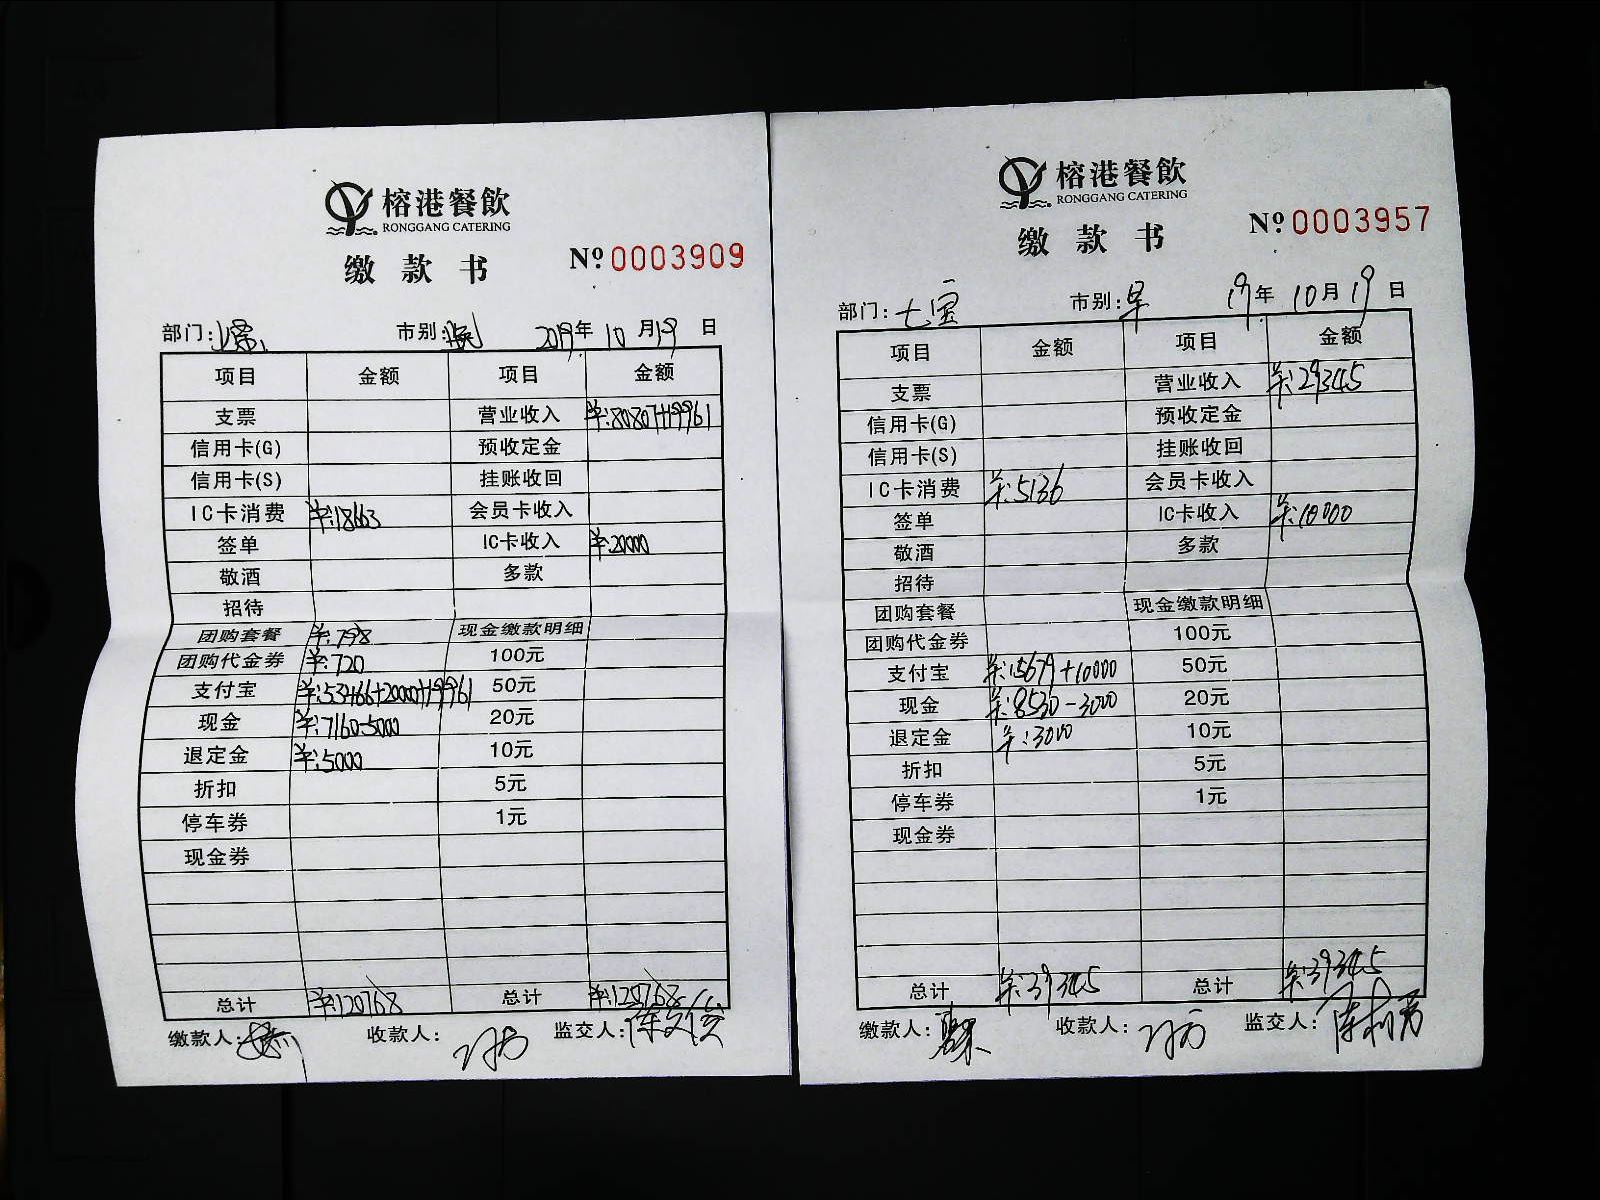 榕港餐飲
RONGGANG CATERING
缴款书
Nº 0003909
部门: 市别:晚 2019年 10月19日
项目 金额 项目 金额
支票 营业收入 ¥:80807+19961
信用卡(G) 预收定金
信用卡(S) 挂账收回
IC卡消费 ¥:18663 会员卡收入
签单 IC卡收入 ¥:20000
敬酒 多款
招待
团购套餐 ¥:798 现金缴款明细
团购代金券 ¥:720 100元
支付宝 ¥:53466+20000+19961 50元
现金 ¥:7160-5000 20元
退定金 ¥:5000 10元
折扣 5元
停车券 1元
现金券
总计 ¥:120768 总计 ¥:120768
缴款人: 收款人: 监交人:
榕港餐飲
RONGGANG CATERING
缴款书
Nº 0003957
部门:七宝 市别:早 19年 10月19日
项目 金额 项目 金额
支票 营业收入 ¥:29345
信用卡(G) 预收定金
信用卡(S) 挂账收回
IC卡消费 ¥:5136 会员卡收入
签单 IC卡收入 ¥:10000
敬酒 多款
招待
团购套餐 现金缴款明细
团购代金券 100元
支付宝 ¥:15679+10000 50元
现金 ¥:8530-3000 20元
退定金 ¥:3000 10元
折扣 5元
停车券 1元
现金券
总计 ¥:39345 总计 ¥:39345
缴款人: 收款人: 监交人: